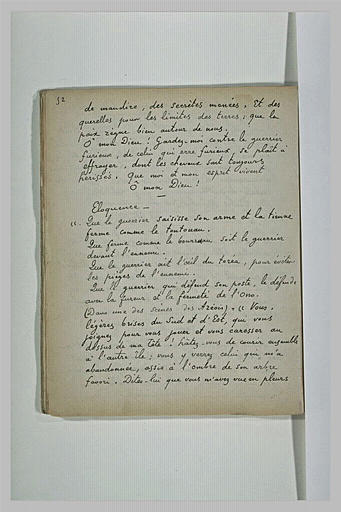 52
de maudire, des secrètes menées. Et des
querelles pour les limites des terres; que la
paix règne bien autour de nous.
O mon Dieu! Gardez-moi contre le guerrier
furieux, de celui qui erre furieux, se plait à
effrayer, dont les cheveux sont toujours
hérissés. Que moi et mon esprit vivent
O mon Dieu!
Eloquence –
". Que le guerrier saisisse son arme et la tienne
ferme comme le
Que ferme comme le bourreau soit le guerrier
devant l'ennemi.
Que le guerrier ait l'œil du toréa, pour éviter
les pièges de l'ennemi.
Que le guerrier qui défend son poste, le défende
avec la fureur et la fermeté de l'Ono.
(Dans une des scènes des Aréois) – "Vous,
légères brises du Sud et d'Est, qui vous
joignez pour vous jouer et vous caresser au
dessus de ma tête! hâtez-vous de courir ensemble
à l'autre île; vous y verrez celui qui m'a
abandonnée, assis à l'ombre de son arbre
favori. Dites-lui que vous m'avez vue en pleurs